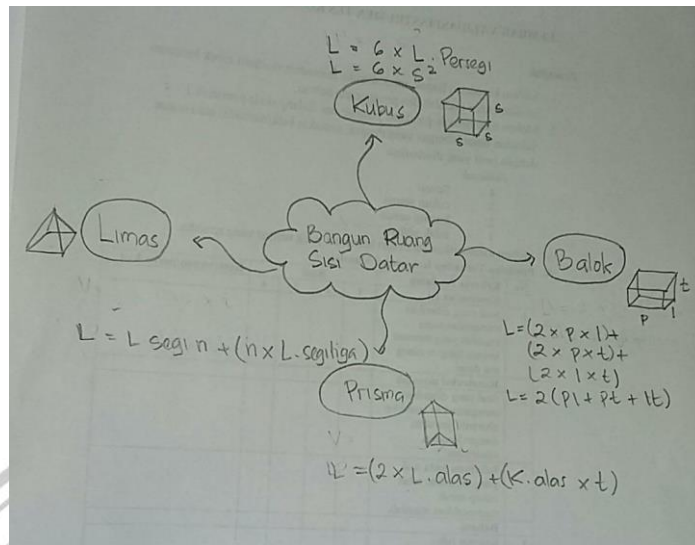 L = 6 x L. Persegi
L = 6 x S²
Kubus
s
s
s
Limas
Bangun Ruang
Sisi Datar
Balok
t
l
p
L = L segi n + (n x L. segitiga)
L=(2 x p x l)+
(2 x p x t)+
(2 x l x t)
L= 2 (pl + pt + lt)
Prisma
L =(2 x L. alas) + (K. alas x t)